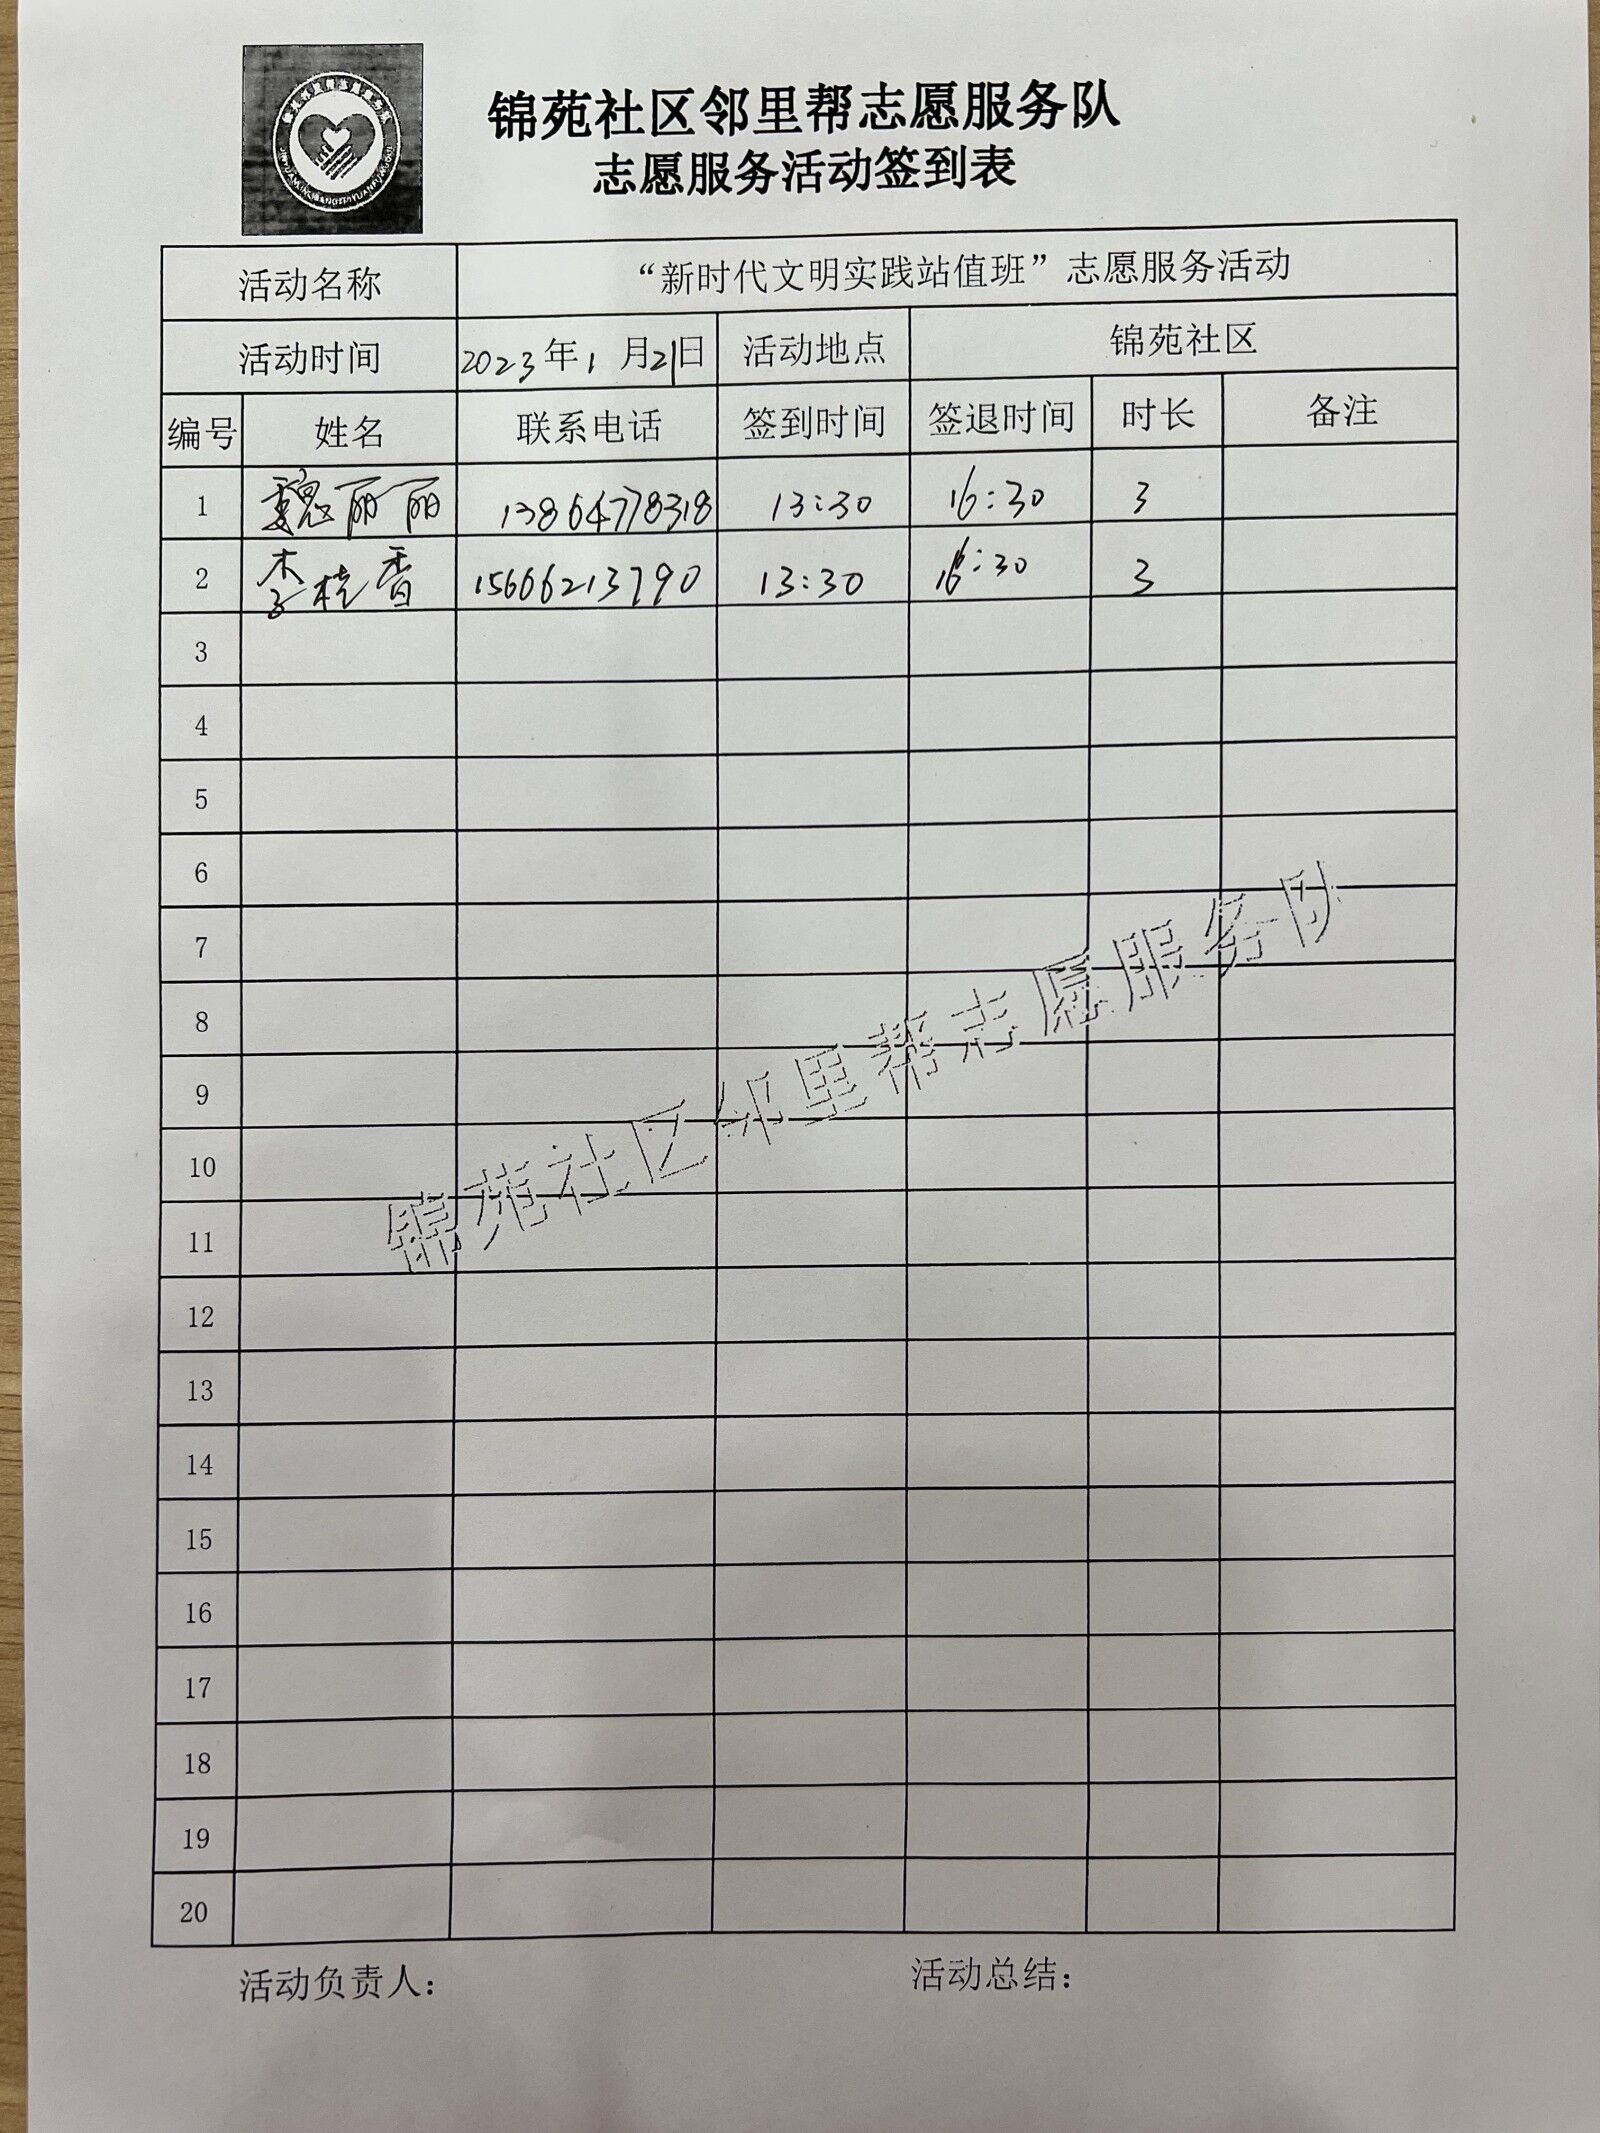 锦苑社区邻里帮志愿服务队
志愿服务活动签到表
活动名称 “新时代文明实践站值班”志愿服务活动
活动时间 2023年1月21日 活动地点 锦苑社区
编号 姓名 联系电话 签到时间 签退时间 时长 备注
1 魏丽丽 13864778318 13:30 16:30 3
2 李桂香 15666213790 13:30 16:30 3
3
4
5
6
7
8
9
10
11
12
13
14
15
16
17
18
19
20
锦苑社区邻里帮志愿服务队
活动负责人: 活动总结: